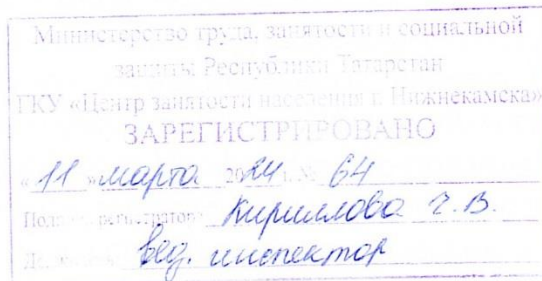 Министерство труда, занятости и социальной
защиты Республики Татарстан
ГКУ «Центр занятости населения г. Нижнекамска»
ЗАРЕГИСТРИРОВАНО
«11» марта 2024 г. № 64
Подпись регистратора Кириллова Г.В.
вед. инспектор